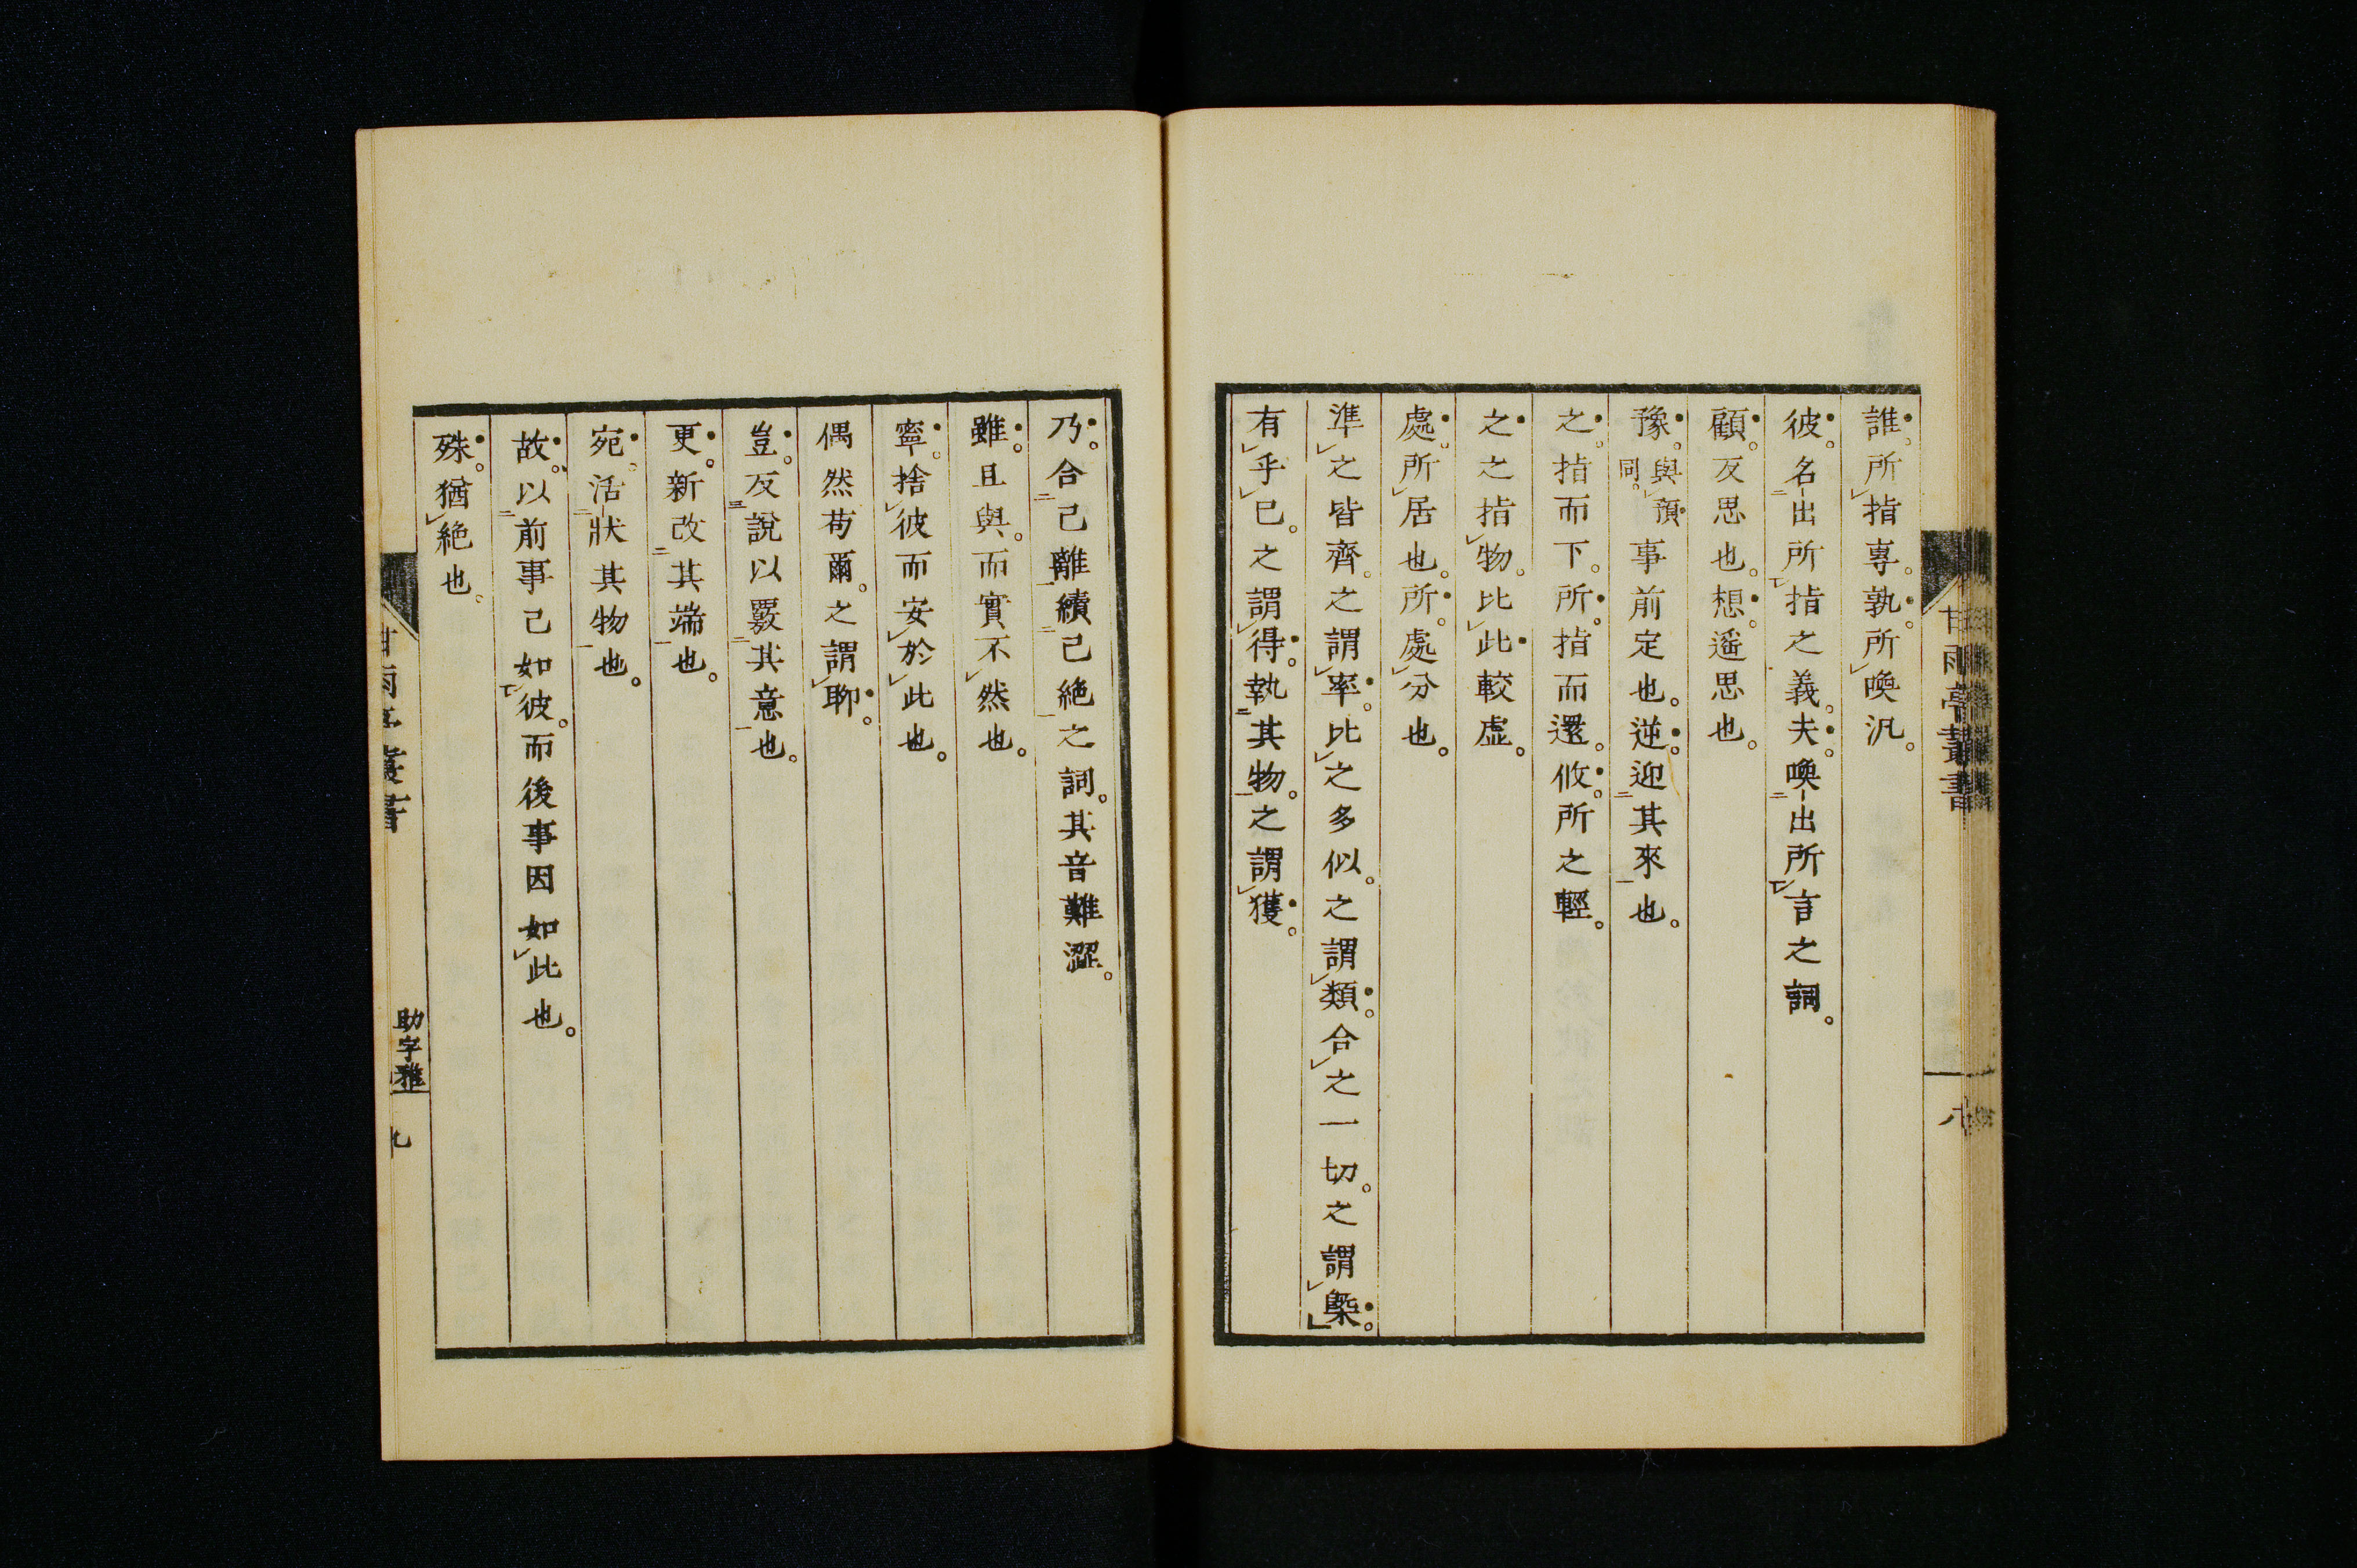 誰。所㆑指專。孰。所㆑喚汎。
彼。名㆓-出所㆒㆑指之義。夫。喚㆓-出所㆒㆑言之詞。
顧。反思也。想。遙思也。
豫。與㆑預同。事前定也。逆。迎㆓其來㆒也。
之。指而下。所。指而還。攸。所之輕。
之。之指㆑物。比㆑此較虛。
處。所㆑居也。所。處㆑分也。
準㆑之皆齊。之謂㆑率。比㆑之多似。之謂㆑類。合㆑之一切。之謂㆑槩。
有㆑乎㆑已。之謂㆑得。執㆓其物㆒。之謂㆑獲。
甘雨亭叢書
八
乃。合㆓己離㆒續㆓己絶㆒之詞。其音難澀。
雖。且與。而實不㆑然也。
寧。捨㆑彼而安㆑於㆑此也。
偶然苟爾。之謂㆑聊。
豈。反㆔說以覈㆓其意㆒也。
更。新改㆓其端㆒也。
宛。活㆓-狀其物㆒也。
故。以㆓前事己如㆒㆑彼。而後事因如㆑此也。
殊。猶㆑絶也。
甘雨亭叢書
助字雅
九